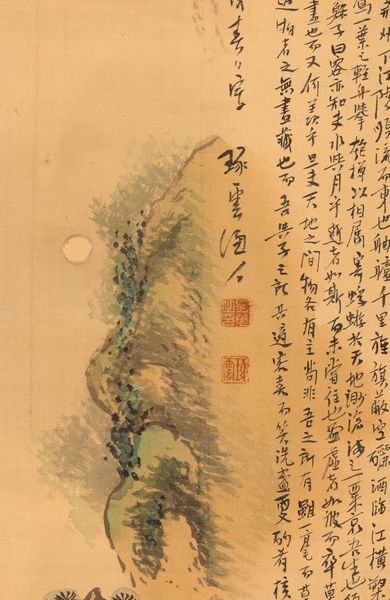 荊州下江陵順流而東也舳艫千里旌旗蔽空釃酒臨江橫槊
駕一葉之輕舟舉匏樽以相属寄蜉蝣於天地渺滄海之一粟哀吾生也
蘇子曰客亦知夫水與月乎逝者如斯而未嘗往也盈虛者如彼而卒莫
盡也而又何羨乎且夫天地之間物各有主苟非吾之所有雖一毫而莫
造物者之無盡藏也而吾與子之所共適客喜而笑洗盞更酌肴核
琢雲
琢雲